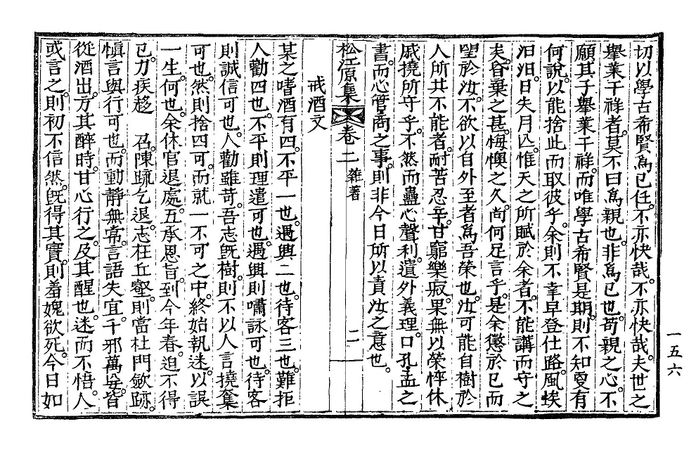 切以學古希賢爲己任。不亦快哉。不亦快哉。夫世之
擧業干祥者。莫不曰爲親也。非爲己也。苟親之心。不
願其子擧業干祥。而唯學古希賢是期。則不知夏有
何說。以能捨此而取彼乎。余則不幸早登仕路。風埃
汨汨。日失月亾。惟天之所賦於余者。不能講而守之
棄之甚。悔懊之久。尙何足言乎。是余懲於己而
望於汝。不欲以自外至者爲吾榮也。汝可能自樹於
人所共不能者。耐苦忍辛。甘窮樂寂。果無以榮悴休
戚撓所守乎。不然而蠱心聲利。遺外義理。口孔孟之
書。而心管商之事。則非今日所以責汝之意也。
松江原集 卷二 雜著 二
戒酒文
某之嗜酒有四。不平一也。遇興二也。待客三也。難拒
人勸四也。不平則理遣可也。遇興則嘯詠可也。待客
則誠信可也。人勸雖苛。吾志旣樹。則不以人言撓奪
可也。然則捨四可。而就一不可之中。終始執迷。以誤
一生。何也。余休官退處。五承恩旨。到今年春。迫不得
已。力疾趨 召。陳疏乞退。志在丘壑。則當杜門斂跡。
愼言與行可也。而動靜無常。言語失宜。千邪萬妄。皆
從酒出。方其醉時。甘心行之。及其醒也。迷而不悟。人
或言之。則初不信然。旣得其實。則羞媿欲死。今日如
一五六